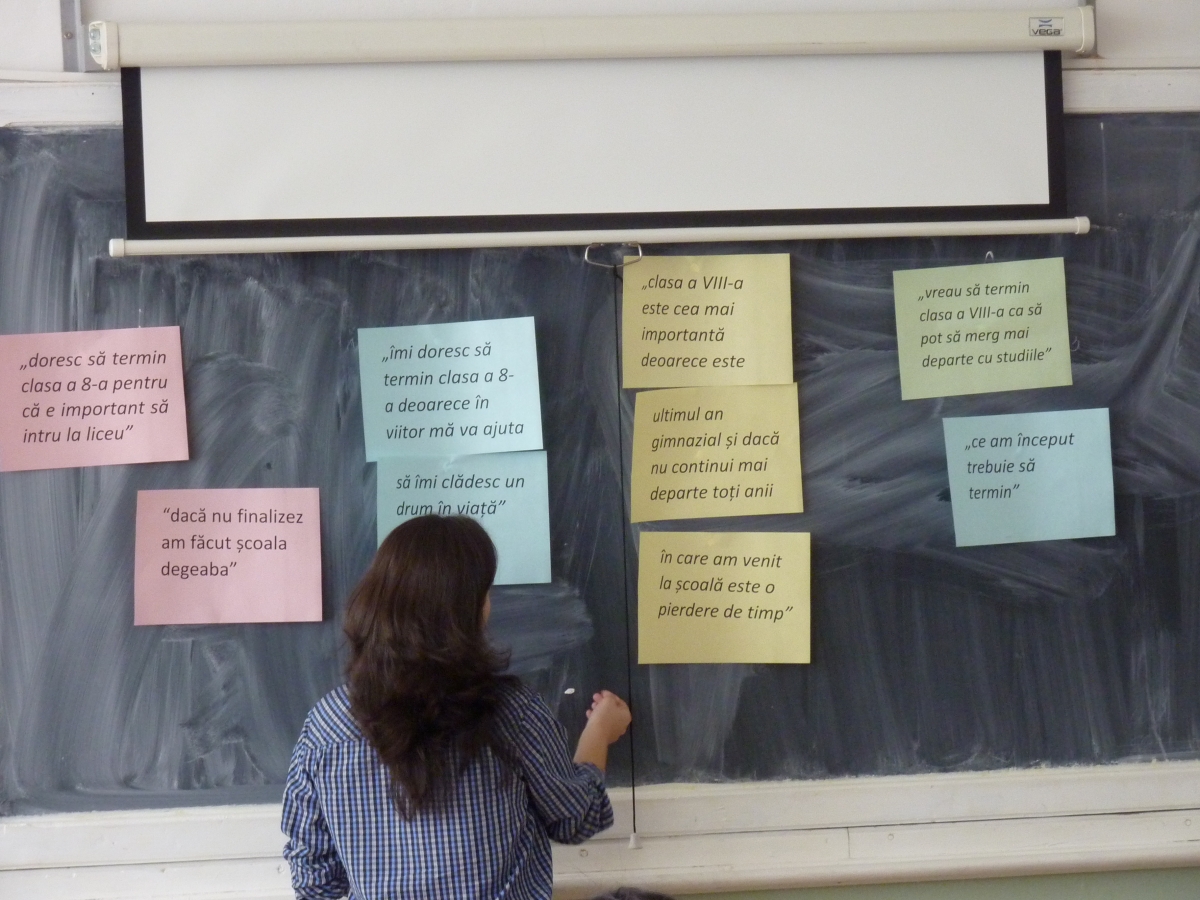 vega
„doresc să termin
clasa a 8-a pentru
că e important să
intru la liceu”
“dacă nu finalizez
am făcut școala
degeaba”
„îmi doresc să
termin clasa a 8-
a deoarece în
viitor mă va ajuta
să îmi clădesc un
drum în viață”
„clasa a VIII-a
este cea mai
importantă
deoarece este
ultimul an
gimnazial și dacă
nu continui mai
departe toți anii
în care am venit
la școală este o
pierdere de timp”
„vreau să termin
clasa a VIII-a ca să
pot să merg mai
departe cu studiile”
„ce am început
trebuie să
termin”